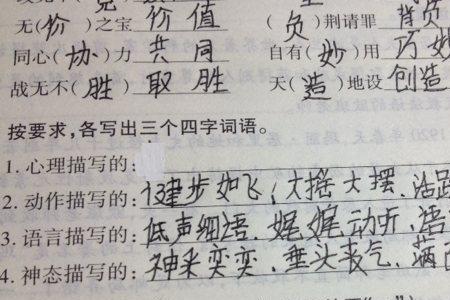 无(价)之宝 价值 (负)荆请罪 背负
同心(协)力 共同 自有(妙)用 巧妙
战无不(胜) 取胜 天(造)地设 创造
按要求,各写出三个四字词语。
1.心理描写的:
2.动作描写的:健步如飞,大摇大摆、
3.语言描写的:低声细语、娓娓动听、语
4.神态描写的:神采奕奕、垂头丧气、